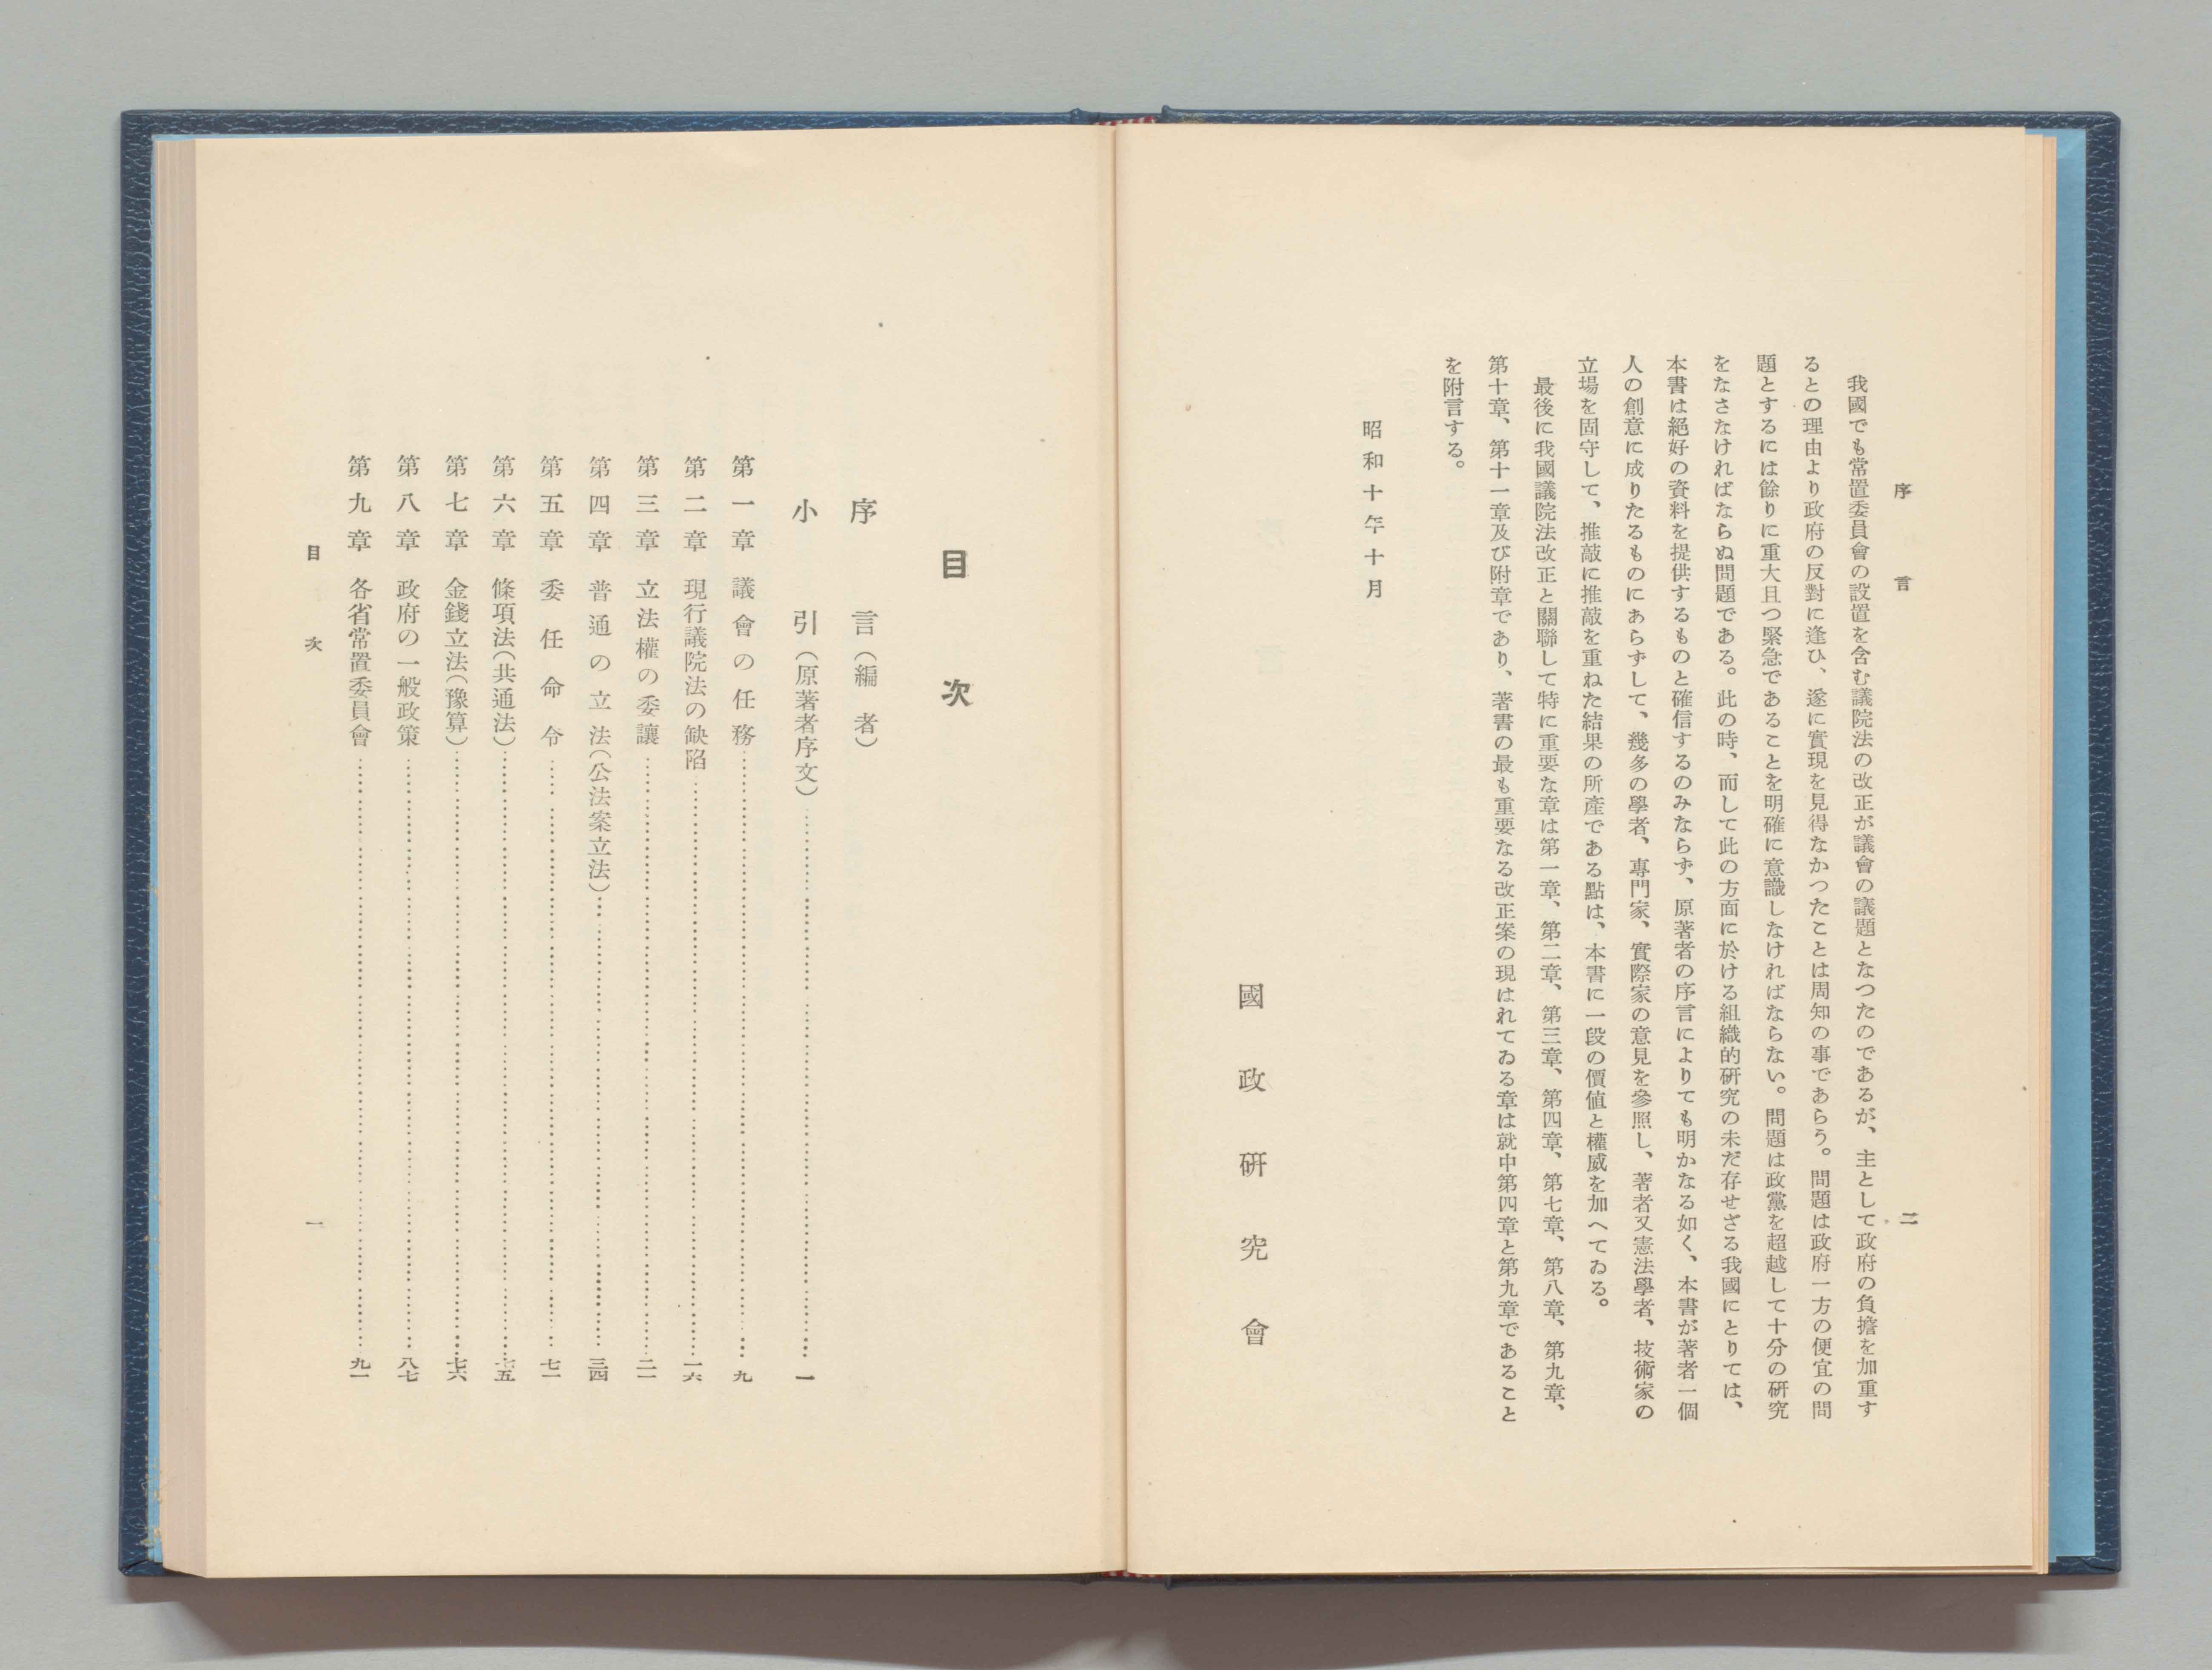 序言
二
我國でも常置委員會の設置を含む議院法の改正が議會の議題となつたのであるが、主として政府の負擔を加重す
るとの理由より政府の反對に逢ひ、遂に實現を見得なかつたことは周知の事であらう。問題は政府一方の便宜の問
題とするには餘りに重大且つ緊急であることを明確に意識しなければならない。問題は政黨を超越して十分の研究
をなさなければならぬ問題である。此の時、而して此の方面に於ける組織的研究の未だ存せざる我國にとりては、
本書は絕好の資料を提供するものと確信するのみならず、原著者の序言によりても明かなる如く、本書が著者一個
人の創意に成りたるものにあらずして、幾多の學者、專門家、實際家の意見を參照し、著者又憲法學者、技術家の
立場を固守して、推敲に推敲を重ねた結果の所產である點は、本書に一段の價値と權威を加へてゐる。
最後に我國議院法改正と關聯して特に重要な章は第一章、第二章、第三章、第四章、第七章、第八章、第九章、
第十章、第十一章及び附章であり、著書の最も重要なる改正案の現はれてゐる章は就中第四章と第九章であること
を附言する。
昭和十年十月
國政研究會
目次
序言（編者）
小引（原著者序文）…一
第一章 議會の任務…九
第二章 現行議院法の缺陷…一六
第三章 立法權の委讓…二一
第四章 普通の立法（公法案立法）…三四
第五章 委任命令…七一
第六章 條項法（共通法）…七五
第七章 金錢立法（豫算）…七六
第八章 政府の一般政策…八七
第九章 各省常置委員會…九一
目次
一